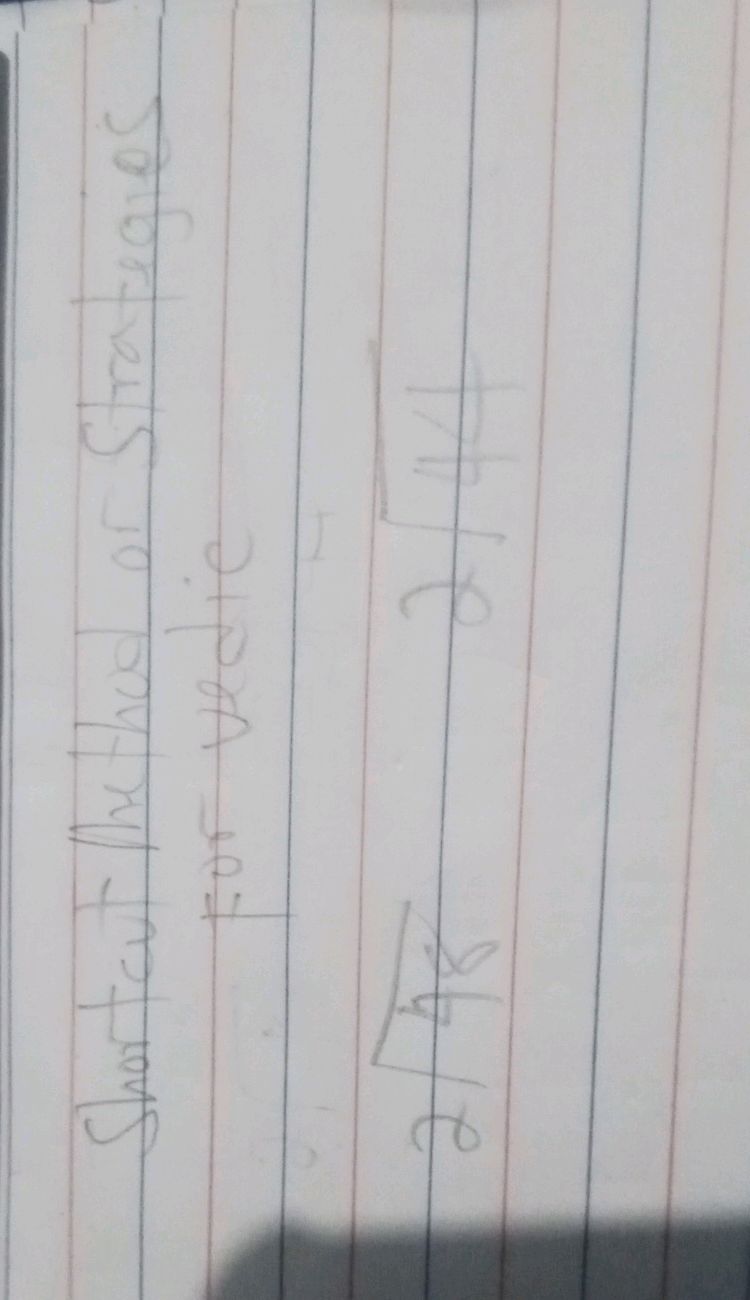 Shortcut Method or Strategies
For vedic
2√48 2√44